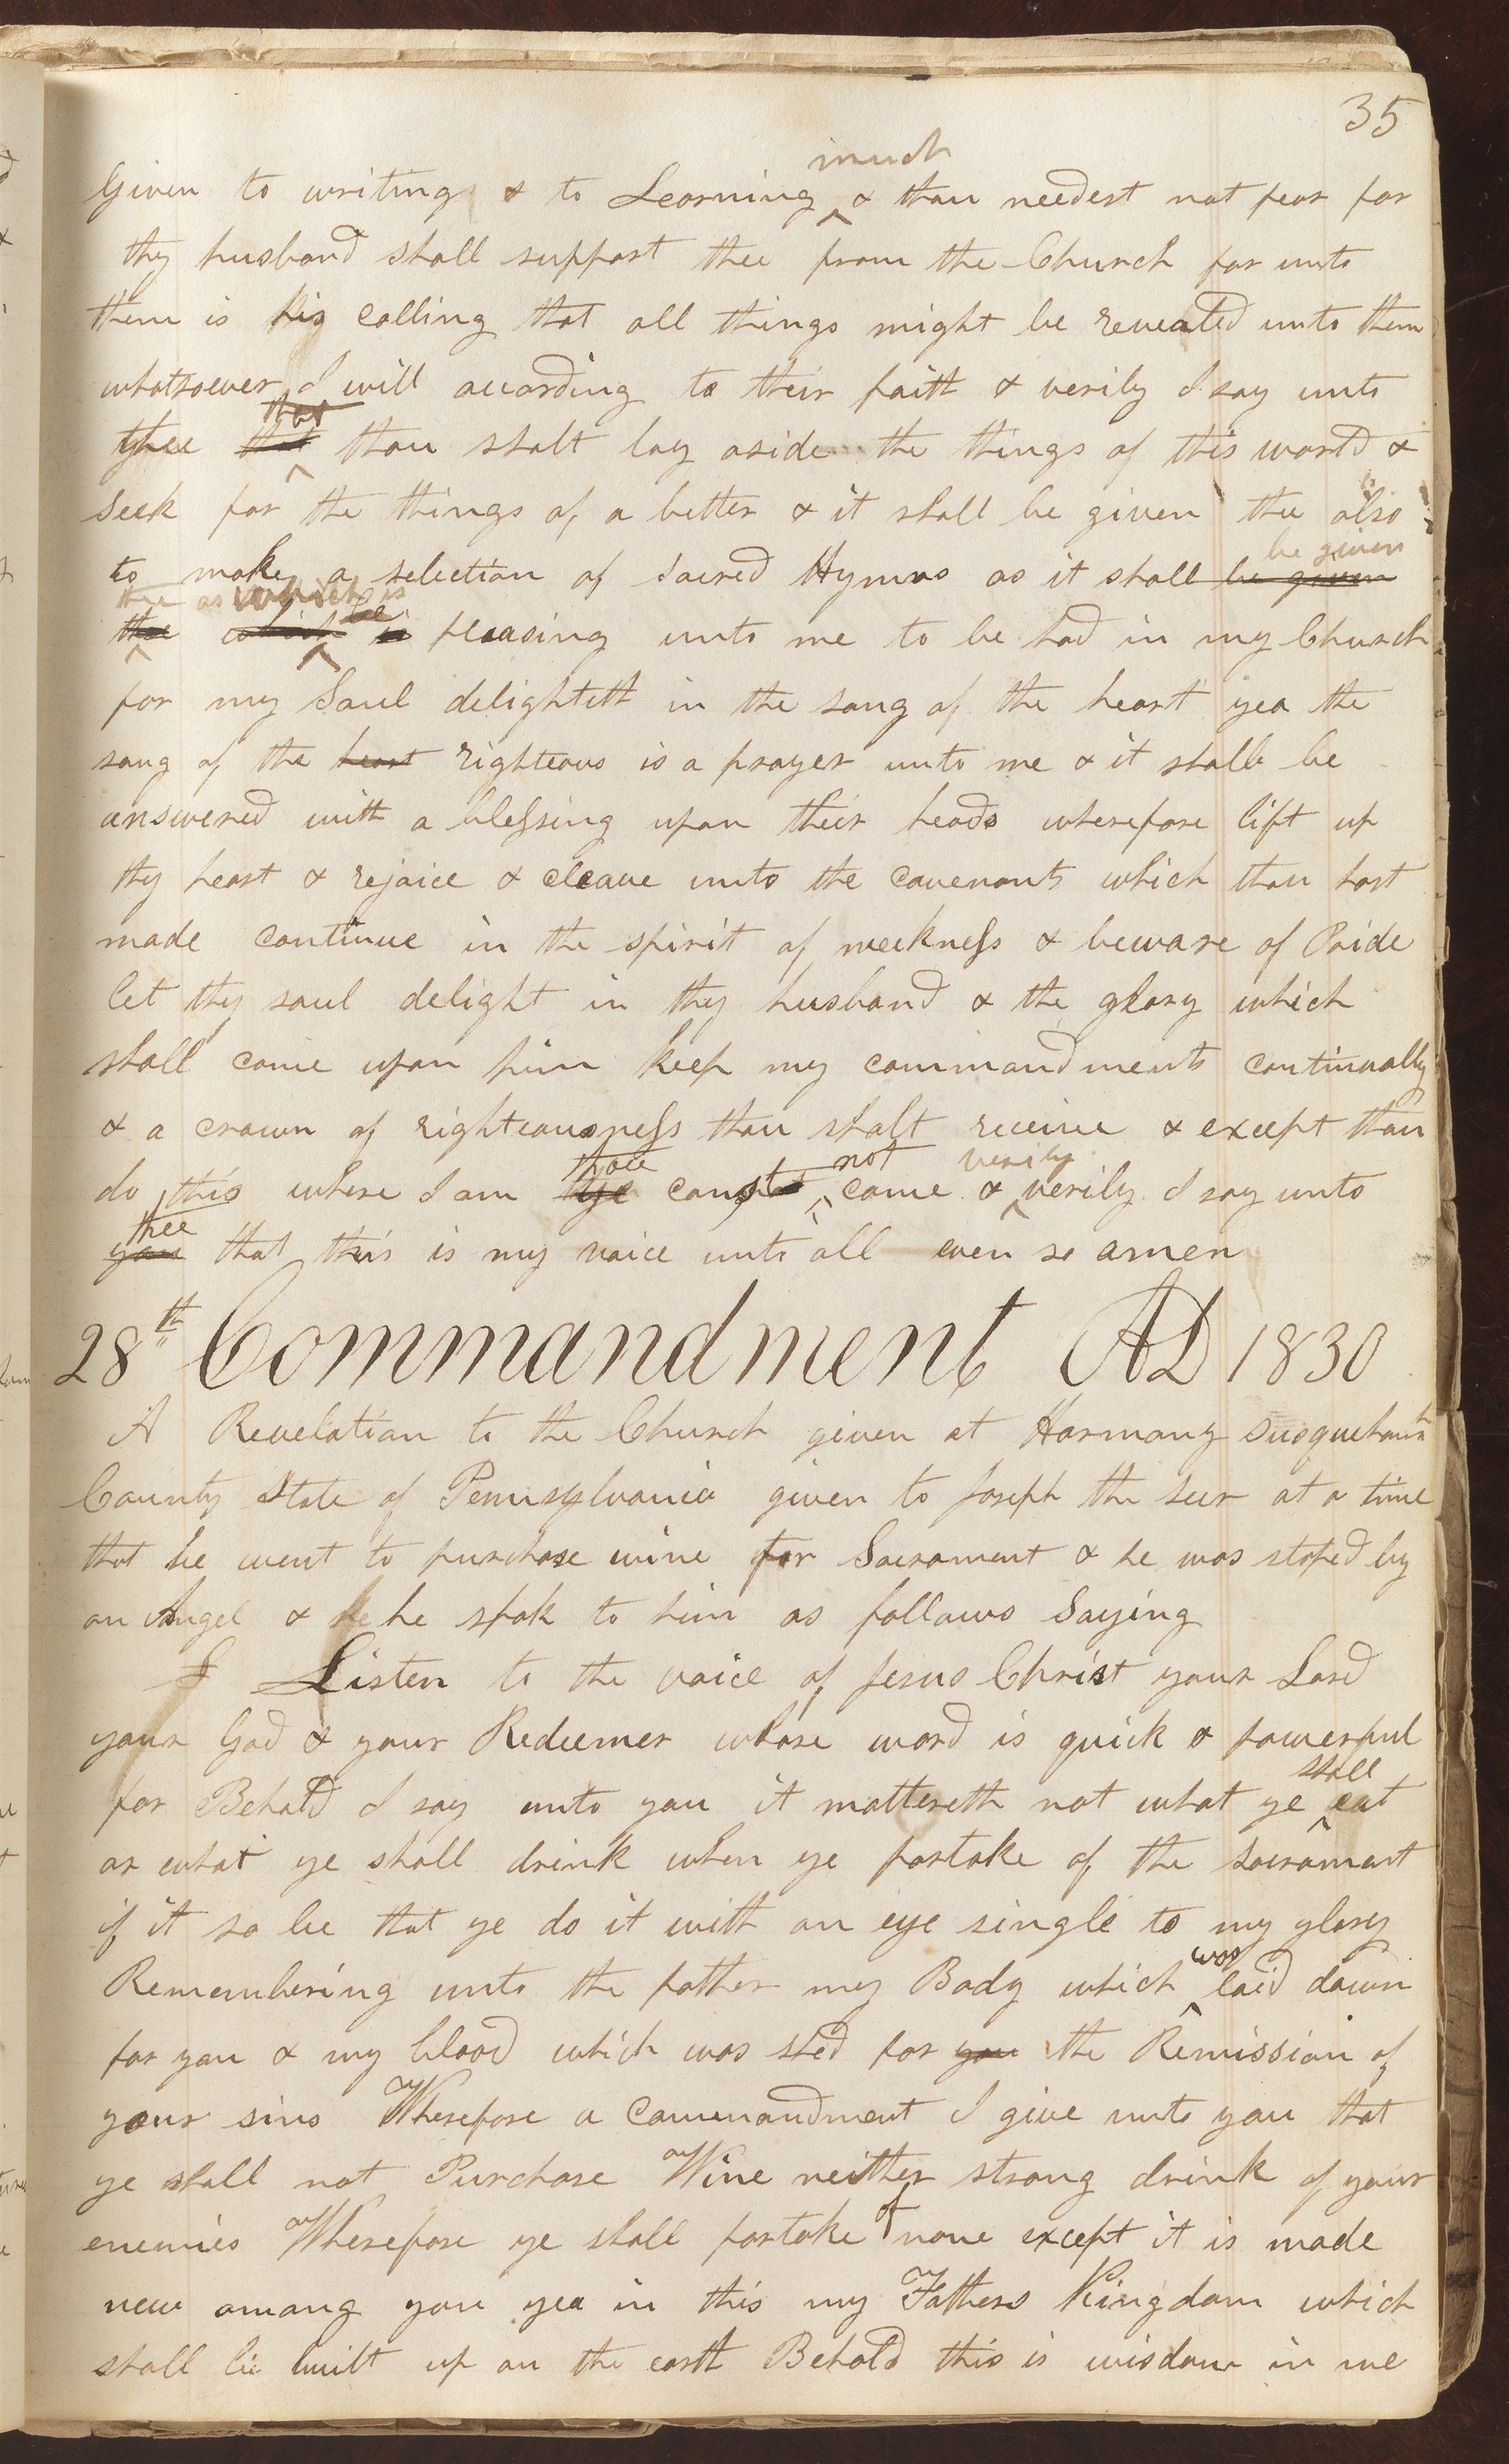 35
much
Given to writing & to Learning & thou needest not fear for
thy husband shall support thee from the Church for unto
them is his calling that all things might be revealed unto them
whatsoever I will according to their faith & verily I say unto
that
thee that thou shalt lay aside the things of this world &
seek for the things of a better & it shall be given thee also
be given
to make a selection of Sacred Hymns as it shall be given
thee as which is be
thee which is pleasing unto me to be had in my Church
for my Soul delighteth in the song of the heart yea the
song of the heart righteous is a prayer unto me & it shall be
answered with a blessing upon their heads wherefore lift up
thy heart & rejoice & cleave unto the covenants which thou hast
made continue in the spirit of meekness & beware of Pride
let thy soul delight in thy husband & the glory which
shall come upon him keep my commandments continually
& a crown of righteousness thou shalt receive & except thou
thou not verily
do this where I am ye canst come & verily I say unto
thee
you that this is my voice unto all even so amen
28th Commandment AD 1830
A Revelation to the Church given at Harmony Susquehanna
County State of Pennsylvania given to Joseph the seer at a time
that he went to purchase wine for Sacrament & he was stoped by
an Angel & he he spok to him as follows Saying
I Listen to the voice of Jesus Christ your Lord
your God & your Redeemer whose word is quick & powerful
shall
for Behold I say unto you it mattereth not what ye eat
or what ye shall drink when ye partake of the sacrament
if it so be that ye do it with an eye single to my glory
was
Remembering unto the father my Body which laid down
for you & my blood which was shed for you the Remission of
your sins Wherefore a commandment I give unto you that
ye shall not Purchase Wine neither strong drink of your
enemies Wherefore ye shall partake of none except it is made
new among you yea in this my Fathers Kingdom which
shall be built up on the earth Behold this is wisdom in me